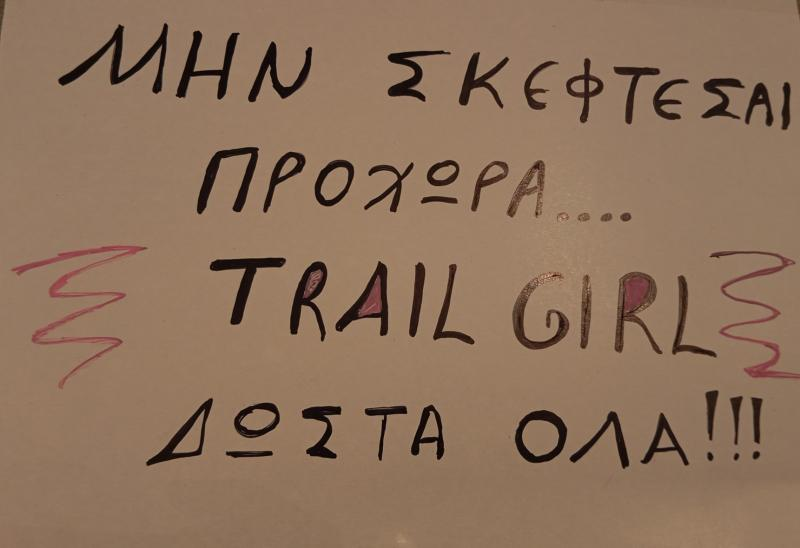 ΜΗΝ ΣΚΕΦΤΕΣΑΙ
ΠΡΟΧΩΡΑ....
TRAIL GIRL
ΔΩΣΤΑ ΟΛΑ!!!